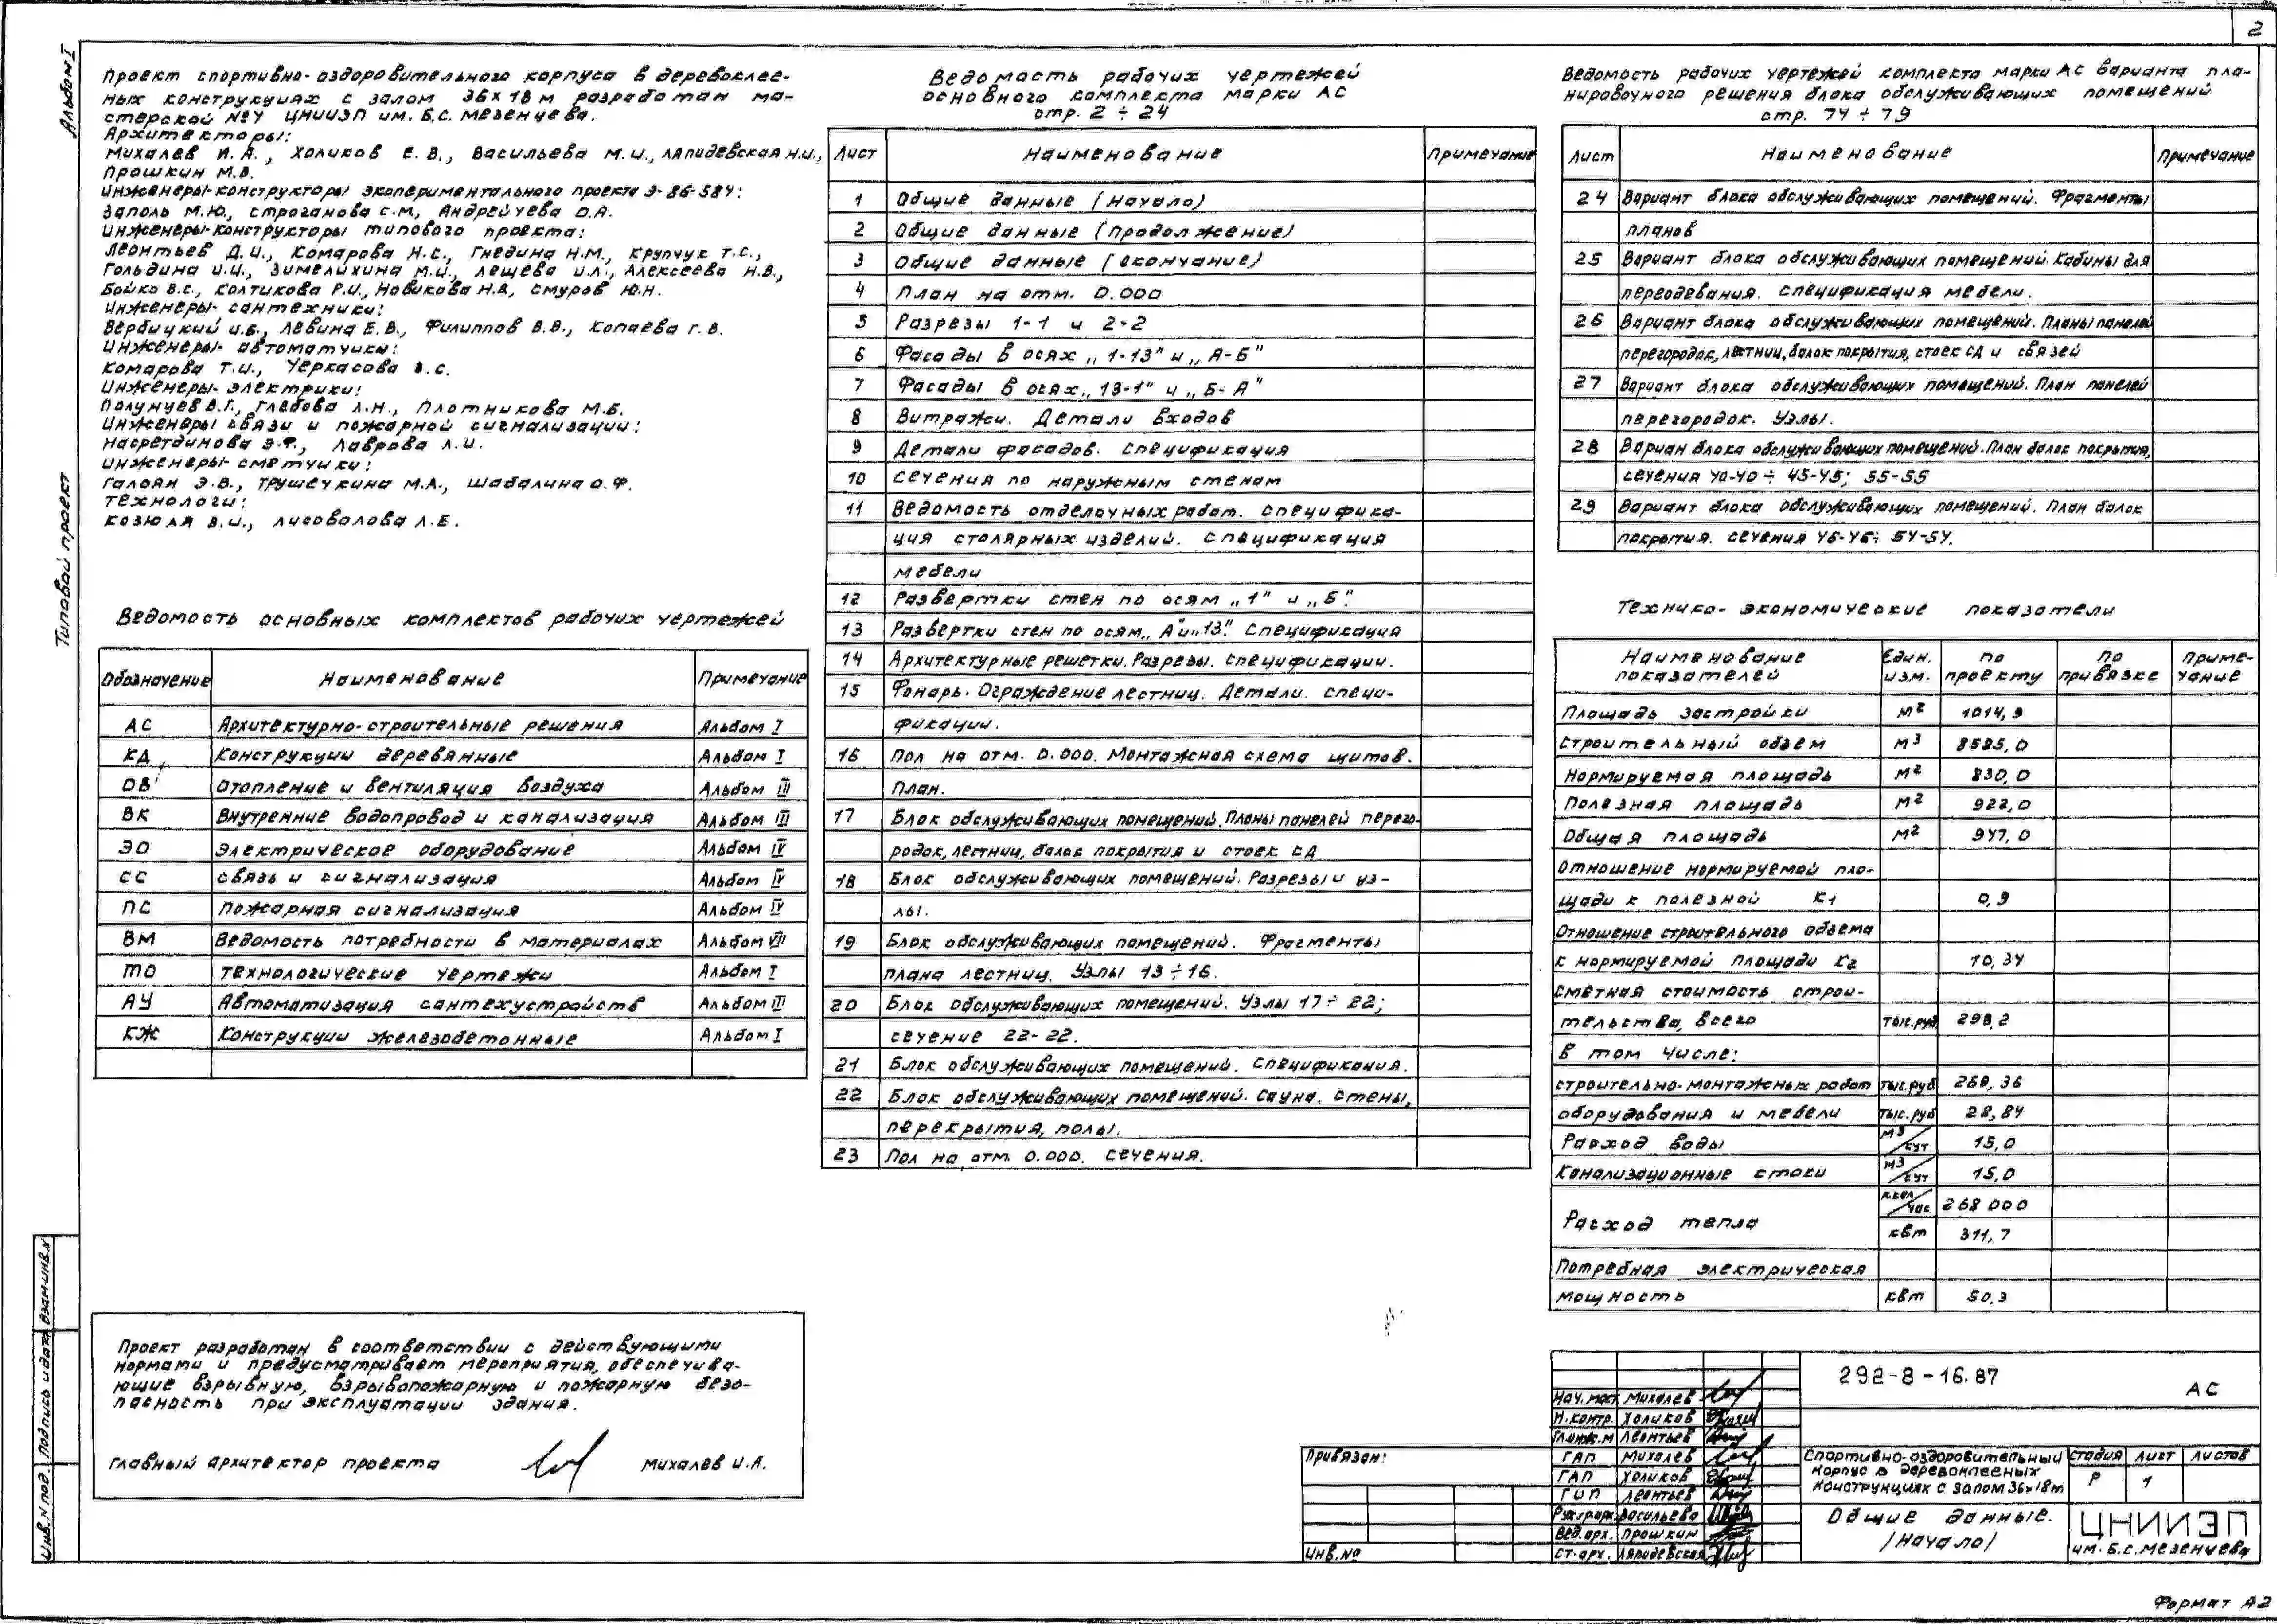 2
Альбом I
Типовой проект
Проект спортивно-оздоровительного корпуса в деревоклее-
ных конструкциях с залом 36х18 м разработан ма-
стерской №4 ЦНИИЭП им. Б.С. Мезенцева.
Архитекторы:
Михалев И.А., Холиков Е.В., Васильева М.И., Ляпидевская Н.И.,
Прошкин М.В.
Инженеры-конструкторы экспериментального проекта Э-86-584:
Заполь М.Ю., Строганова С.М, Андрейчева О.А.
Инженеры-конструкторы типового проекта:
Леонтьев Д.И., Комарова Н.С., Гнедина Н.М., Крупчук Т.С.,
Гольдина И.И., Зимелихина М.И., Лещева И.Л., Алексеева Н.В.,
Бойко В.С., Колтикова Р.И., Новикова Н.В, Смуров Ю.Н.
Инженеры-сантехники:
Вербицкий И.Б., Левина Е.В., Филиппов В.В., Копаева Г.В.
Инженеры-автоматчики:
Комарова Т.И., Черкасова З.С.
Инженеры-электрики:
Полунцев В.Г., Глебова Л.Н., Плотникова М.Б.
Инженеры связи и пожарной сигнализации:
Насретдинова Э.Ф., Лаврова Л.И.
Инженеры-сметчики:
Галоян Э.В., Трушечкина М.А., Шабалина О.Ф.
Технологи:
Козюля В.И., Лисовалова Л.Е.
Ведомость основных комплектов рабочих чертежей
Обозначение Наименование Примечание
АС Архитектурно-строительные решения Альбом I
КД Конструкции деревянные Альбом I
ОВ Отопление и вентиляция воздуха Альбом III
ВК Внутренние водопровод и канализация Альбом III
ЭО Электрическое оборудование Альбом IV
СС Связь и сигнализация Альбом IV
ПС Пожарная сигнализация Альбом IV
ВМ Ведомость потребности в материалах Альбом VII
ТО Технологические чертежи Альбом I
АУ Автоматизация сантехустройств Альбом III
КЖ Конструкции железобетонные Альбом I
Проект разработан в соответствии с действующими
нормами и предусматривает мероприятия, обеспечива-
ющие взрывную, взрывопожарную и пожарную безо-
пасность при эксплуатации здания.
Главный архитектор проекта Михалев И.А.
Ведомость рабочих чертежей
основного комплекта марки АС
стр. 2 ÷ 24
Лист Наименование Примечание
1 Общие данные (начало)
2 Общие данные (продолжение)
3 Общие данные (окончание)
4 План на отм. 0.000
5 Разрезы 1-1 и 2-2
6 Фасады в осях „1-13" и „А-Б"
7 Фасады в осях „13-1" и „Б-А"
8 Витражи. Детали входов
9 Детали фасадов. Спецификация
10 Сечения по наружным стенам
11 Ведомость отделочных работ. Специфика-
ция столярных изделий. Спецификация
мебели
12 Развертки стен по осям „1" и „Б".
13 Развертки стен по осям „А" и „13". Спецификация
14 Архитектурные решетки. Разрезы. Спецификации.
15 Фонарь. Ограждение лестниц. Детали. Специ-
фикации.
16 Пол на отм. 0.000. Монтажная схема щитов.
План.
17 Блок обслуживающих помещений. Планы панелей перего-
родок, лестниц, балок покрытия и стоек СД
18 Блок обслуживающих помещений. Разрезы и уз-
лы.
19 Блок обслуживающих помещений. Фрагменты
плана лестниц. Узлы 13÷16.
20 Блок обслуживающих помещений. Узлы 17÷22;
сечение 22-22.
21 Блок обслуживающих помещений. Спецификация.
22 Блок обслуживающих помещений. Сауна. Стены,
перекрытия, полы.
23 Пол на отм. 0.000. Сечения.
Ведомость рабочих чертежей комплекта марки АС варианта пла-
нировочного решения блока обслуживающих помещений
стр. 74 ÷ 79
Лист Наименование Примечание
24 Вариант блока обслуживающих помещений. Фрагменты
планов
25 Вариант блока обслуживающих помещений. Кабины для
переодевания. Спецификация мебели.
26 Вариант блока обслуживающих помещений. Планы панелей
перегородок, лестниц, балок покрытия, стоек СД и связей
27 Вариант блока обслуживающих помещений. План панелей
перегородок. Узлы.
28 Вариан блока обслуживающих помещений. План балок покрытия,
сечения 40-40 ÷ 45-45; 55-55
29 Вариант блока обслуживающих помещений. План балок
покрытия. Сечения 46-46÷ 54-54.
Технико-экономические показатели
Наименование показателей Един. изм. по проекту по привязке Приме-чание
Площадь застройки м2 1014,9
Строительный объем м3 8585,0
Нормируемая площадь м2 830,0
Полезная площадь м2 922,0
Общая площадь м2 947,0
Отношение нормируемой пло-
щади к полезной К1 0,9
Отношение строительного объема
к нормируемой площади К2 10,34
Сметная стоимость строи-
тельства, всего тыс.руб. 298,2
в том числе:
строительно-монтажных работ тыс.руб 269,36
оборудования и мебели тыс.руб 28,84
Расход воды м3/сут 15,0
Канализационные стоки м3/сут 15,0
Расход тепла ккал/час 268 000
квт 311,7
Потребная электрическая
мощность квт 50,3
Взам.инв.№
Подпись и дата
Инв.№ подл.
Привязан:
Инв.№
Нач.маст. Михалев
Н.контр. Холиков
Гл.инж.м Леонтьев
ГАП Михалев
ГАП Холиков
ГИП Леонтьев
Рук.гр.арх. Васильева
Вед.арх. Прошкин
Ст.арх. Ляпидевская
292-8-16.87
АС
Спортивно-оздоровительный
корпус в деревоклееных
конструкциях с залом 36х18м
Стадия Лист Листов
Р 1
Общие данные.
/начало/
ЦНИИЭП
им. Б.С. Мезенцева
Формат А2